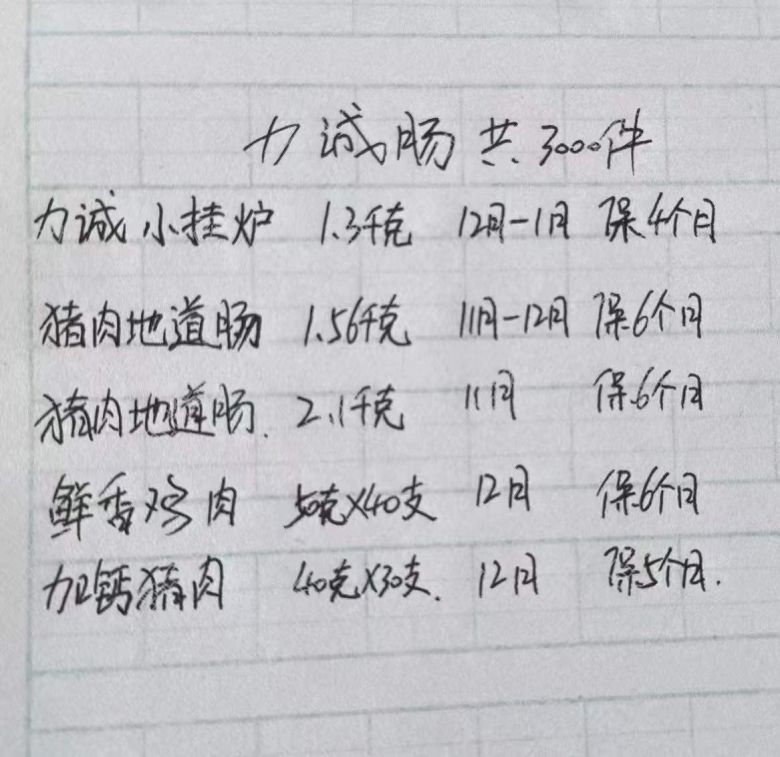 力诚肠 共.3000件
力诚小挂炉 1.3千克 12月-1月 保4个月
猪肉地道肠 1.56千克 11月-12月 保6个月
猪肉地道肠. 2.1千克 11月 保6个月
鲜香鸡肉 50克×40支 12月 保6个月
加钙猪肉 40克×30支. 12月 保5个月.